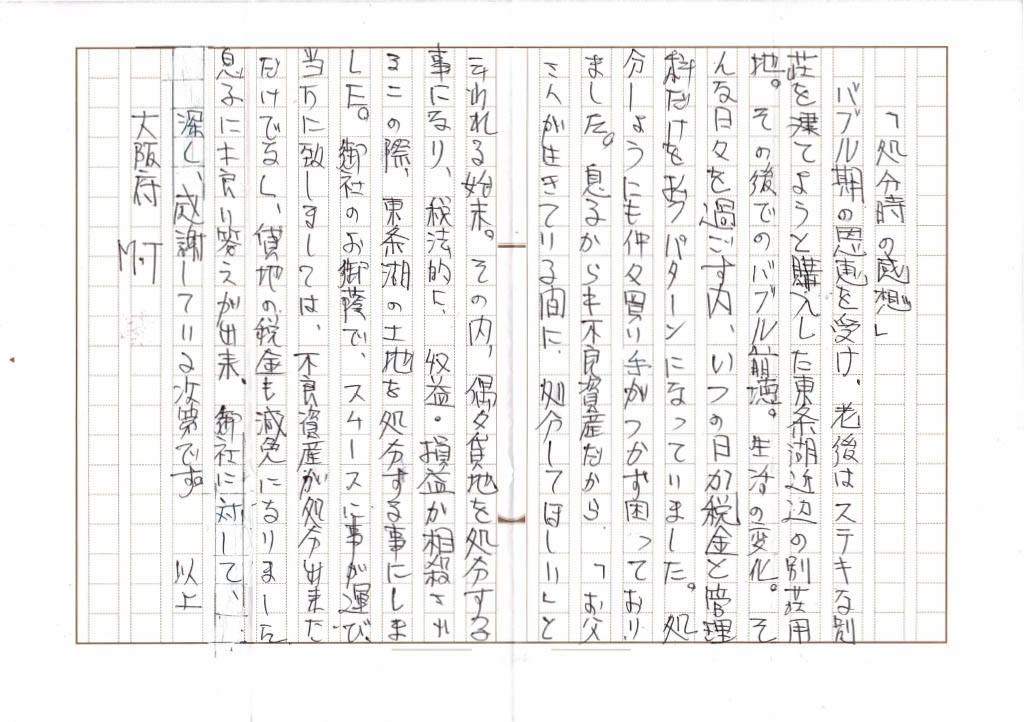 「処分時の感想」
バブル期の恩恵を受け、老後はステキな別
荘を建てようと購入した東条湖近辺の別荘用
地。その後でのバブル崩壊。生活の変化。そ
んな日々を過ごす内、いつの日か税金と管理
料だけを払うパターンになっていました。処
分しようにも仲々買い手がつかず困っており
ました。息子からも不良資産だから、「お父
さんが生きている間に、処分してほしい」と
云われる始末。その内、偶々貸地を処分する
事になり、税法的に、収益・損益が相殺され
るこの際、東条湖の土地を処分する事にしま
した。御社のお御蔭で、スムースに事が運び、
当方に致しましては、不良資産が処分出来た
だけでなく、貸地の税金も減免になりました。
息子にも良い答えが出来、御社に対して、
深く、感謝している次第です。 以上
大阪府 M.T